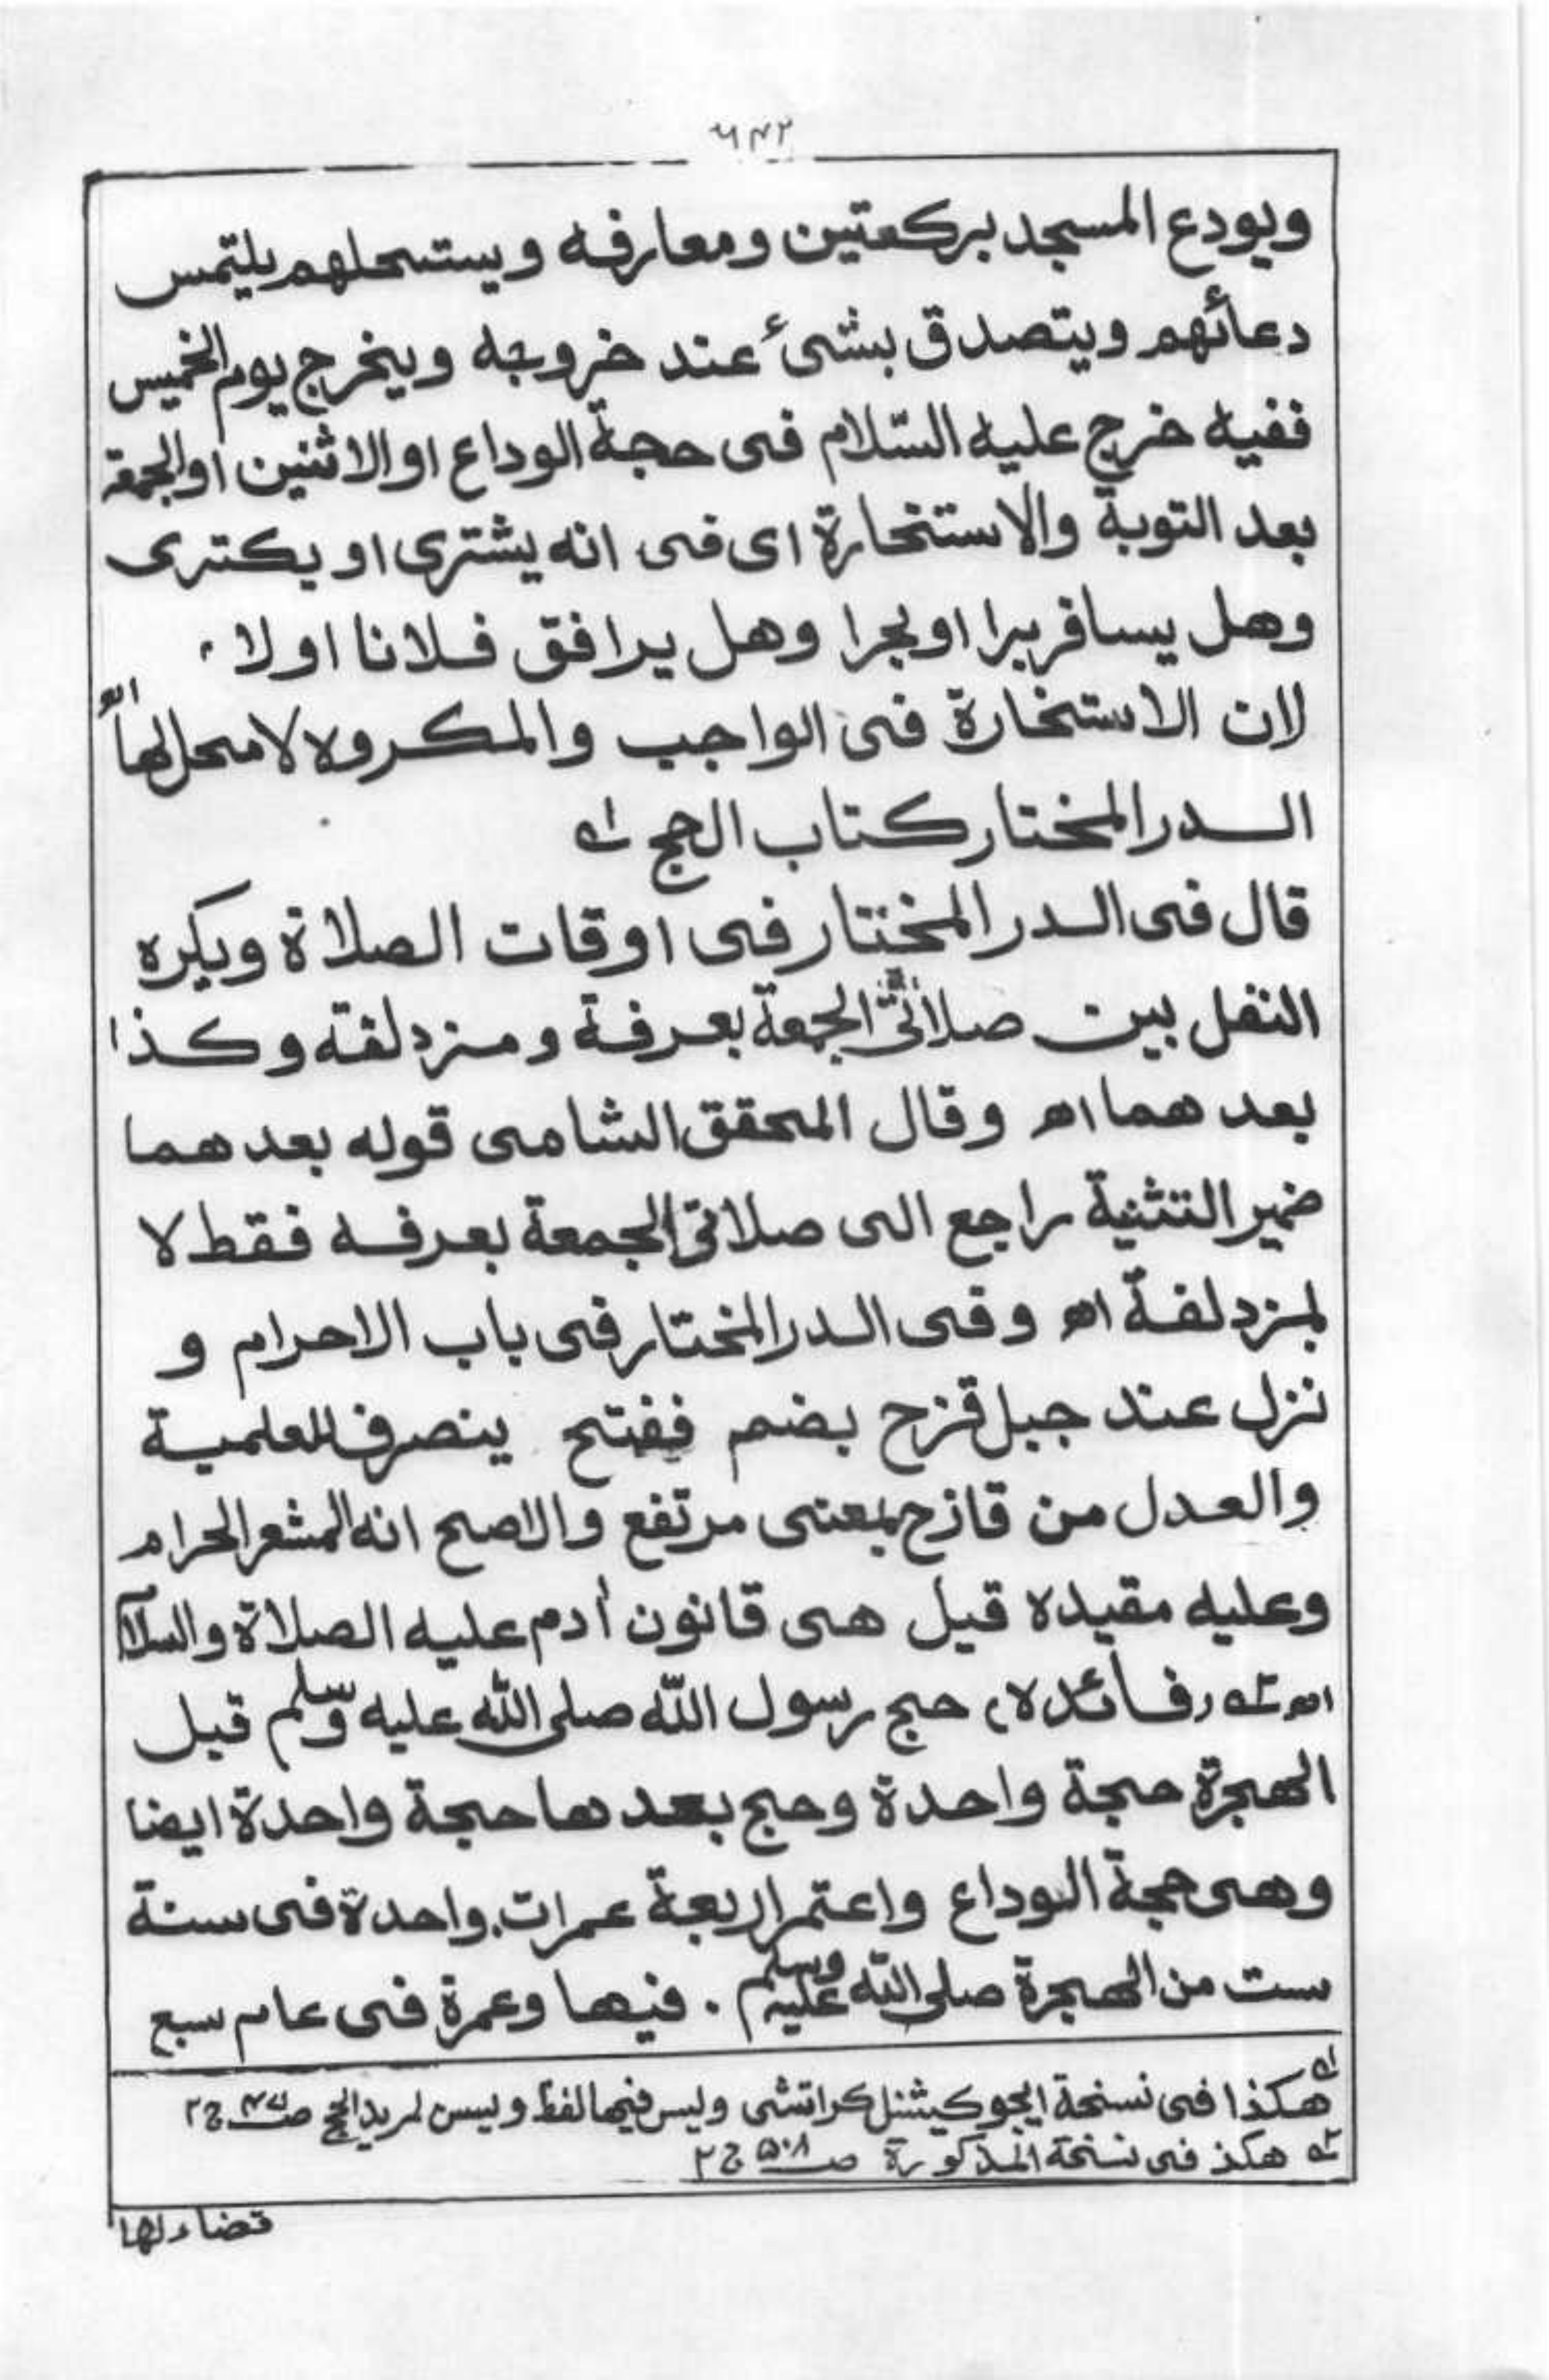 ٦٤٢
ويودع المسجد بركعتين ومعارفه ويستحلهم يلتمس
دعائهم ويتصدق بشئ عند خروجه ويخرج يوم الخميس
ففيه خرج عليه السّلام فى حجة الوداع او الاثنين او الجمعة
بعد التوبة والاستخارة اى فى انه يشترى او يكترى
وهل يسافر برا او بحرا وهل يرافق فلانا اولا،
لان الاستخارة فى الواجب والمكروه لا محل لها اھ
الدر المختار كتاب الحج لہ
قال فى الدر المختار فى اوقات الصلاة ويكره
النفل بين صلاتى الجمعة بعرفة ومزدلفة وكذا
بعدهما اھ وقال المحقق الشامى قوله بعدهما
ضمير التثنية راجع الى صلاتى الجمعة بعرفه فقط لا
بمزدلفة اھ وفى الدر المختار فى باب الاحرام و
نزل عند جبل قزح بضم ففتح ينصرف للعلمية
والعدل من قازح بمعنى مرتفع والاصح انه المشعر الحرام
وعليه مقيده قيل هى قانون أدم عليه الصلاة والسلام
اھ ٢ہ (فائده) حج رسول اللّه صلى اللّه عليه وسلم قبل
الهجرة حجة واحدة وحج بعدها حجة واحدة ايضا
وهى حجة الوداع واعتمر اربعة عمرات. واحدة فى سنة
ست من الهجرة صلى اللّه عليه وسلم . فيها وعمرة فى عام سبع
لہ هكذا فى نسخة ايجوكيشنل كراتشى وليس فيها لفظ وليس لمريد الحج صـ ٤٧ ج ٢
٢ہ هكذ فى نسخة المذكورة صـ ۵۰۸ ج ٢
قضاء لها